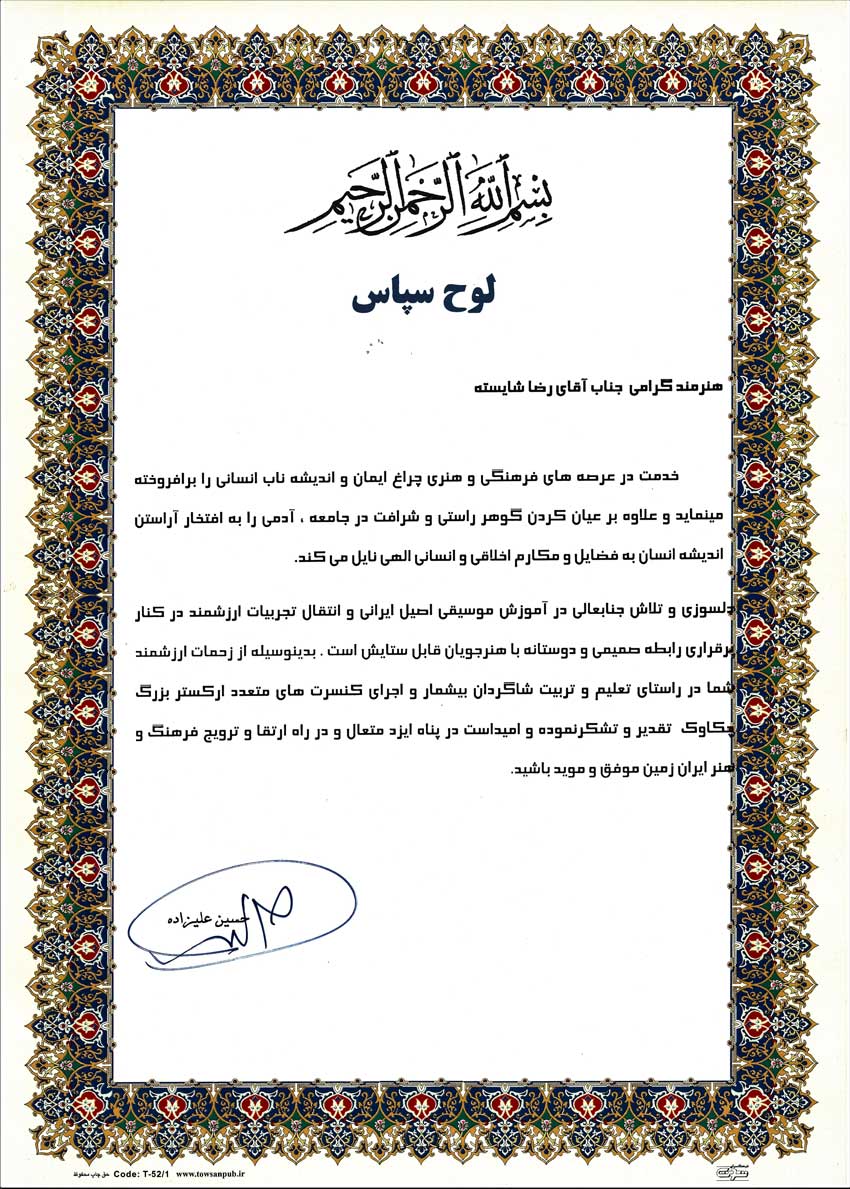 بسم الله الرحمن الرحیم
لوح سپاس
هنرمند گرامی جناب آقای رضا شایسته
خدمت در عرصه های فرهنگی و هنری چراغ ایمان و اندیشه ناب انسانی را برافروخته
مینماید و علاوه بر عیان کردن گوهر راستی و شرافت در جامعه ، آدمی را به افتخار آراستن
اندیشه انسان به فضایل و مکارم اخلاقی و انسانی الهی نایل می کند.
دلسوزی و تلاش جنابعالی در آموزش موسیقی اصیل ایرانی و انتقال تجربیات ارزشمند در کنار
برقراری رابطه صمیمی و دوستانه با هنرجویان قابل ستایش است . بدینوسیله از زحمات ارزشمند
شما در راستای تعلیم و تربیت شاگردان بیشمار و اجرای کنسرت های متعدد ارکستر بزرگ
چکاوک تقدیر و تشکرنموده و امیداست در پناه ایزد متعال و در راه ارتقا و ترویج فرهنگ و
هنر ایران زمین موفق و موید باشید.
حسین علیزاده
حق چاپ محفوظ Code: T-52/1 www.towsanpub.ir